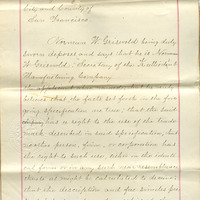 City and County of
San Francisco
Norman W. Griswold being duly
sworn deposes and says that he is Norman
W. Griswold, Secretary of the
Manufacturing Company.
the applicant and that he
believes that the facts set forth in the fore-
going specification are true, that the said
has a right to the use of the trade
mark described in said specification, that
no other person, firm, or corporation has
the right to such use, either in the identi-
cal form or in any such near resemblance
thereto as might be calculated to deceive,
that the description and fac similes pre-